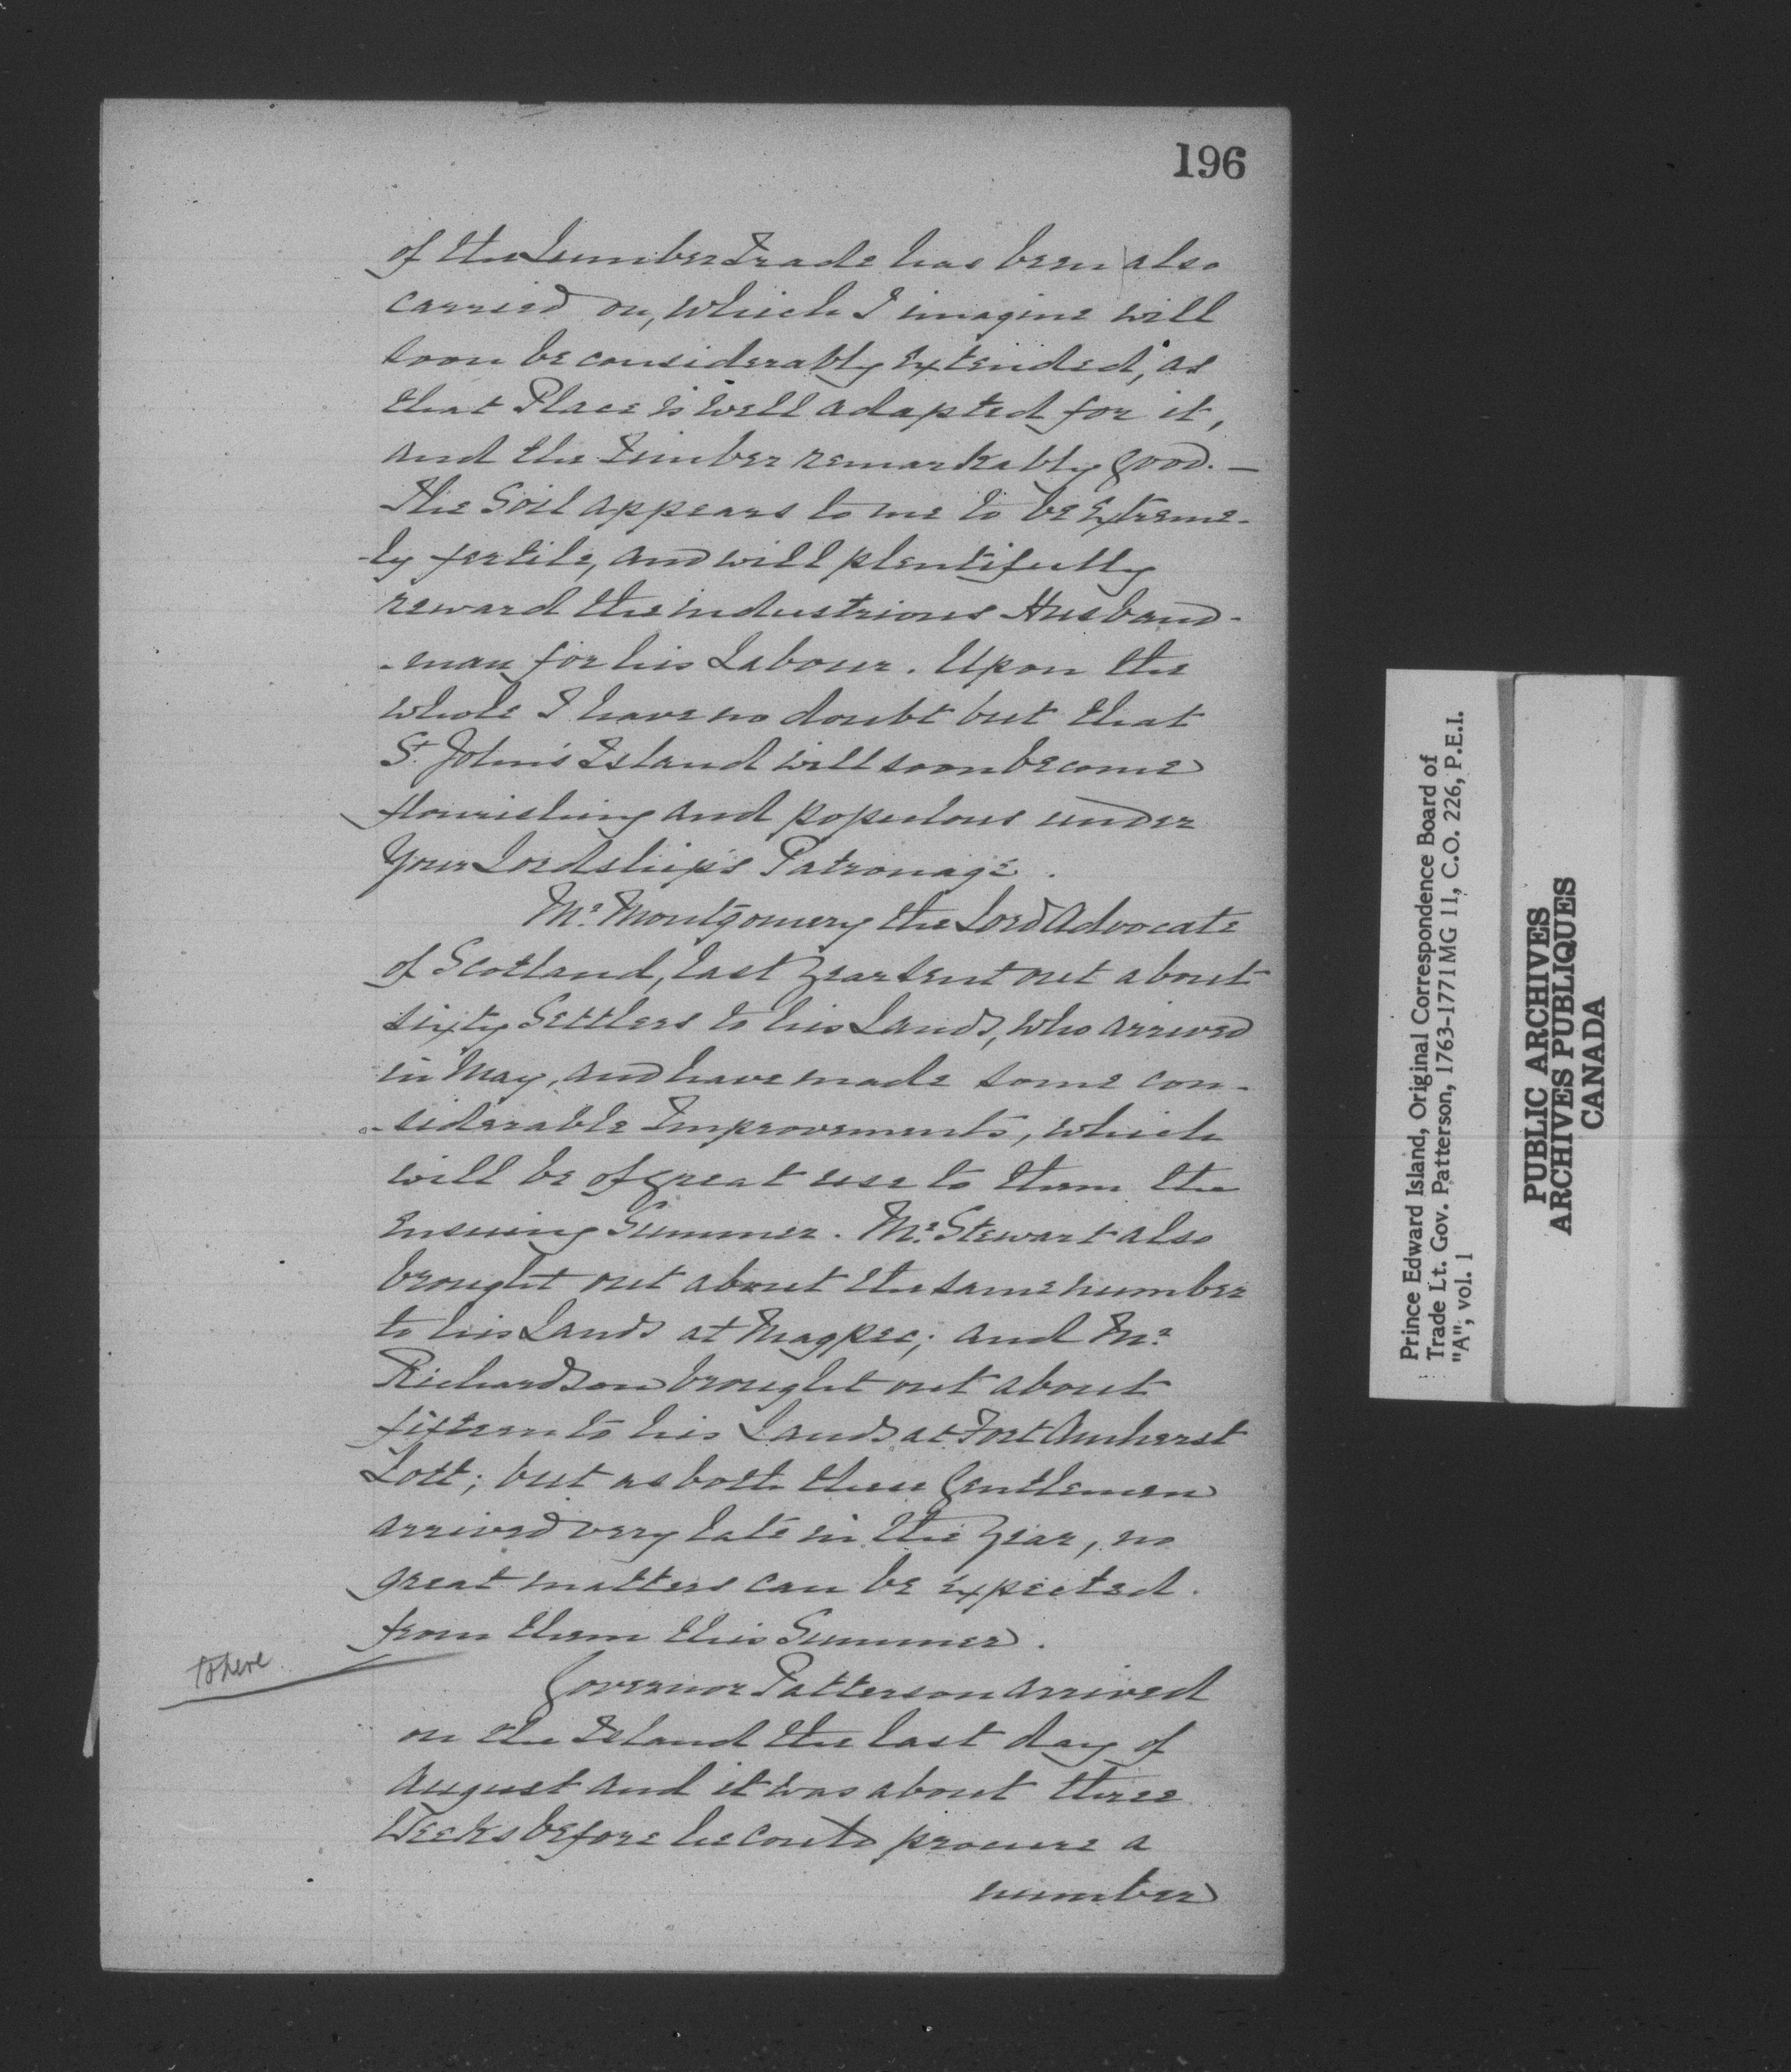 196
of the Lumber Trade has been also
carried on, which I imagine will
soon be considerably extended, as
that Place is well adapted for it,
and the Timber remarkably good. —
The Soil appears to me to be Extreme-
-ly fertile, and will plentifully
reward the industrious Husband-
-man for his Labour. Upon the
whole I have no doubt but that
St. John's Island will soon become
flourishing and populous under
Your Lordship's Patronage.
Mr. Montgomery the Lord Advocate
of Scotland, last Year sent out about
sixty Settlers to his Lands, who arrived
in May, and have made some con-
-siderable Improvements, which
will be of great use to them the
Ensuing Summer. Mr. Stewart also
brought out about the same number
to his Lands at Magpec; and Mr.
Richardson brought out about
fifteen to his Lands at Fort Amherst
Lott; but as both these Gentlemen
arrived very late in the Year, no
great matters can be expected.
from them this Summer.
to here
Governor Patterson arrived
on the Island the last day of
August and it was about three
Weeks before he could procure a
number
Prince Edward Island, Original Correspondence Board of
Trade Lt. Gov. Patterson, 1763-1771 MG 11, C.O. 226, P.E.I.
"A", vol. 1
PUBLIC ARCHIVES
ARCHIVES PUBLIQUES
CANADA